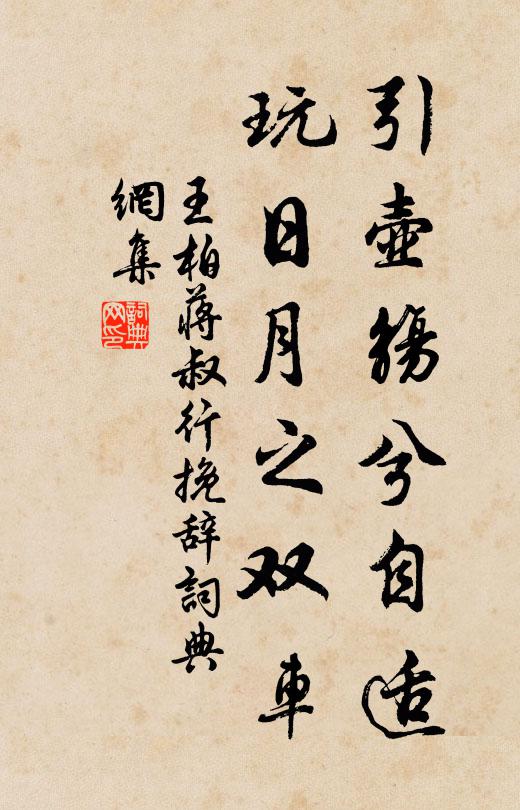 引壺觴兮自适
玩日月之双車
王柏蒋叔行挽辞詞典
網集
詞典网印